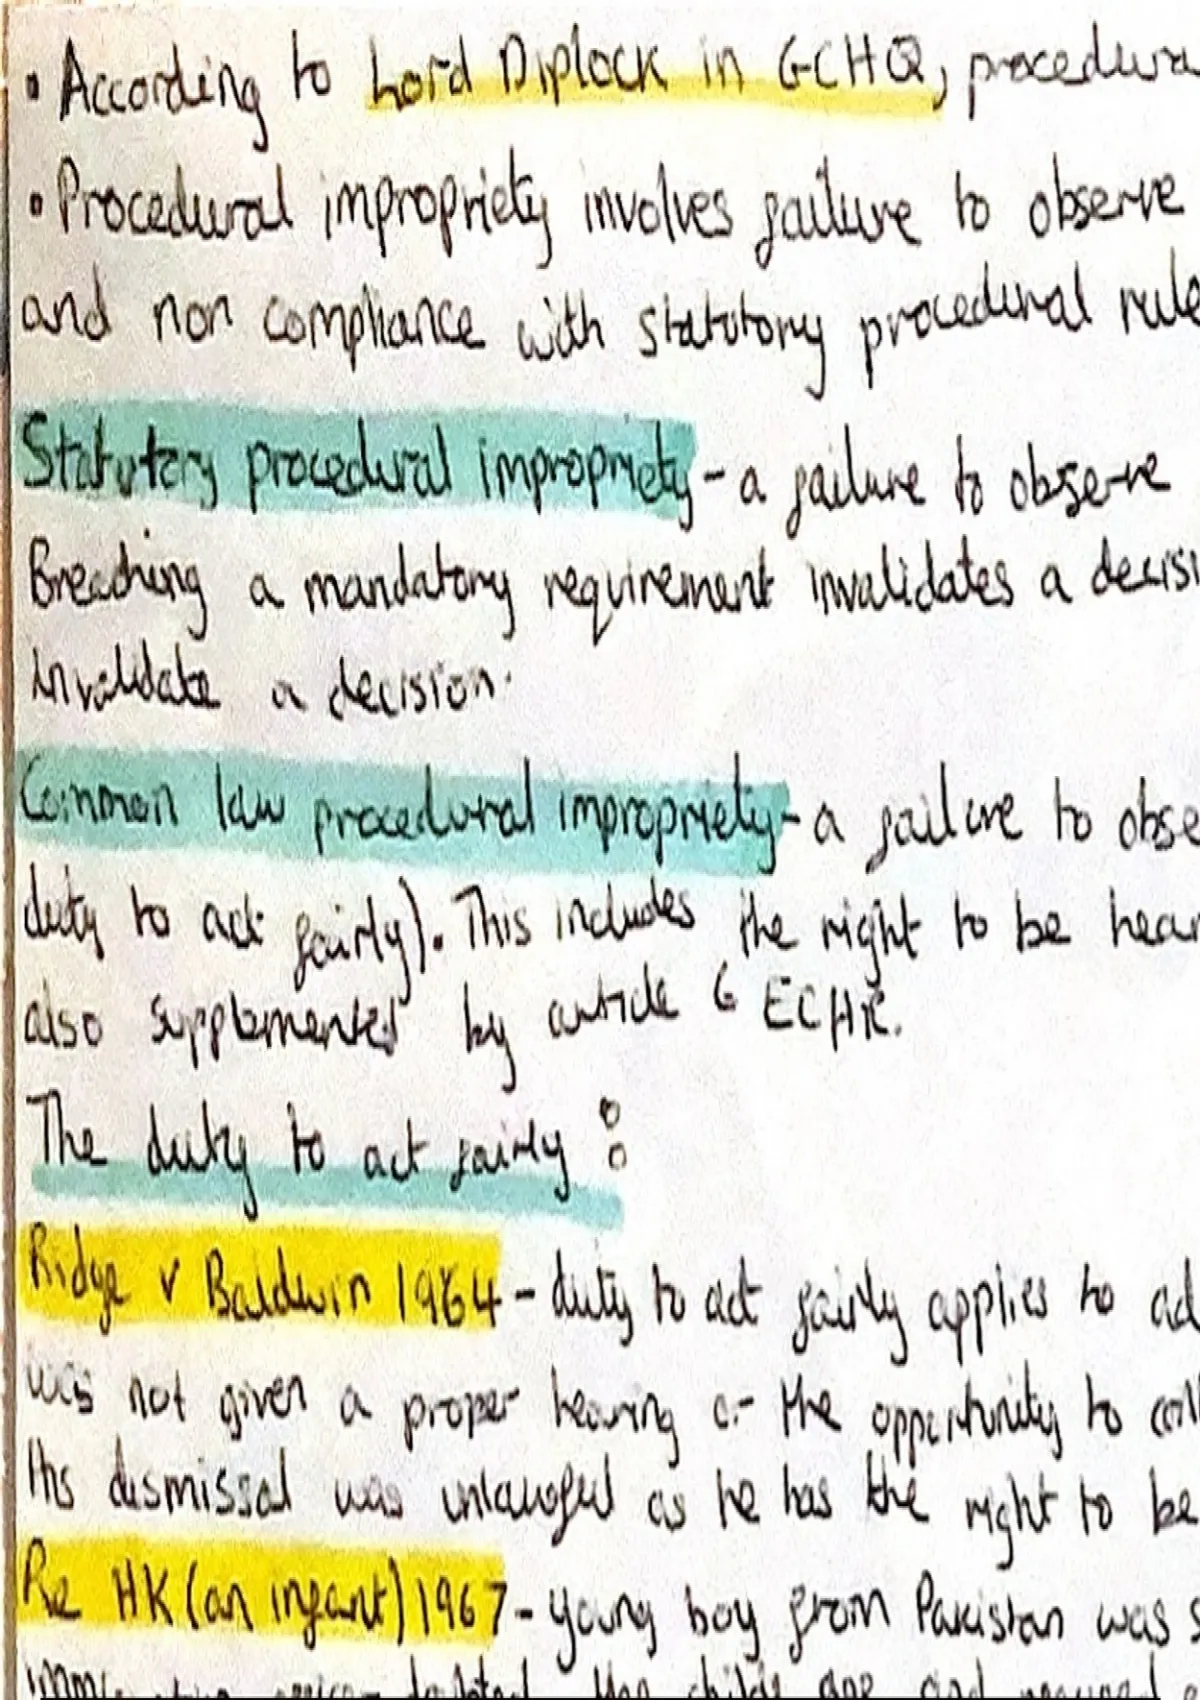 • According to Lord Diplock in GCHQ, procedura
• Procedural impropriety involves failure to observe
and non compliance with statutory procedural rule
Statutory procedural impropriety - a failure to observe
Breaching a mandatory requirement invalidates a decisi
invalidate a decision.
Common law procedural impropriety - a failure to obse
duty to act fairly). This includes the right to be hear
also supplemented by article 6 ECHR.
The duty to act fairly:
Ridge v Baldwin 1964 - duty to act fairly applies to ad
was not given a proper hearing or the opportunity to call
His dismissal was unlawful as he has the right to be
Re HK (an infant) 1967 - young boy from Pakistan was s
doubted the childs age and